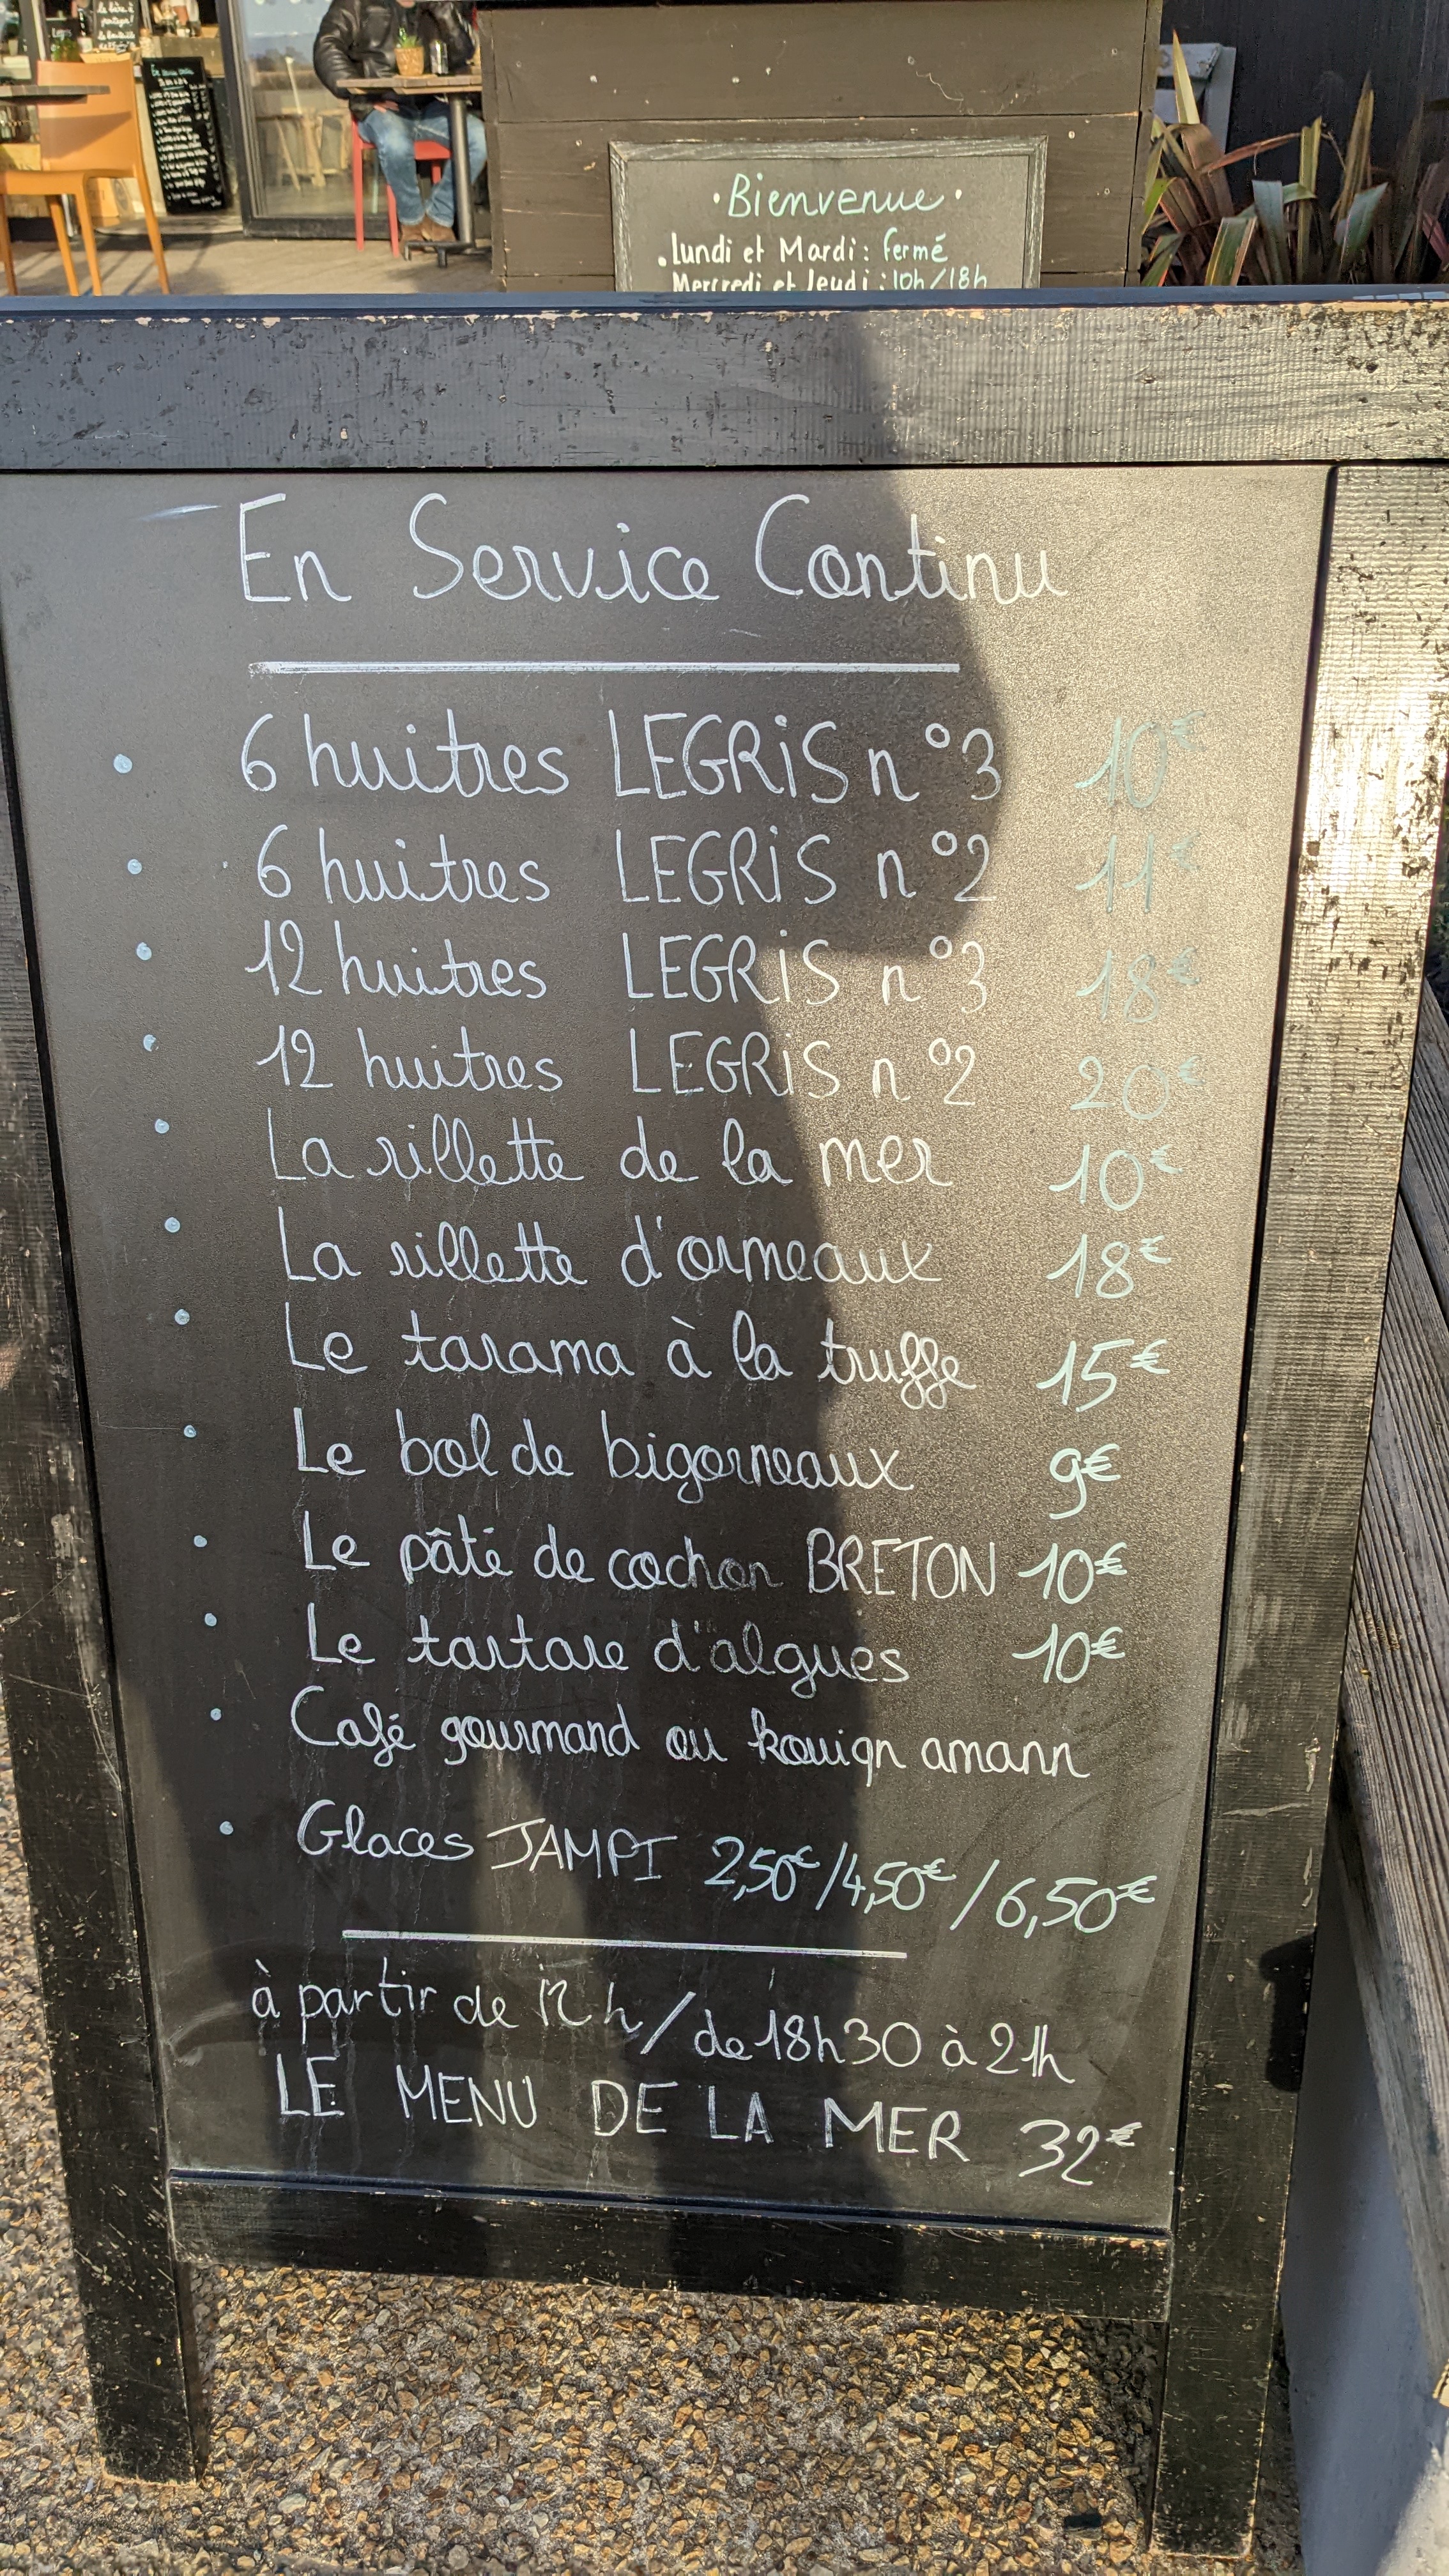 la bière à
partager!
la bouteille
· Bienvenue ·
. Lundi et Mardi : fermé
Mercredi et Jeudi : 10h/18h
En Service Continu
• 6 huitres LEGRIS n°3 10€
• 6 huitres LEGRIS n°2 11€
• 12 huitres LEGRIS n°3 18€
• 12 huitres LEGRIS n°2 20€
• La rillette de la mer 10€
• La rillette d'ormeaux 18€
• Le tarama à la truffe 15€
• Le bol de bigorneaux 9€
• Le pâté de cochon BRETON 10€
• Le tartare d'algues 10€
• Café gourmand ou kouign amann
• Glaces JAMPI 2,50€/4,50€/6,50€
à partir de 12h/de 18h30 à 21h
LE MENU DE LA MER 32€